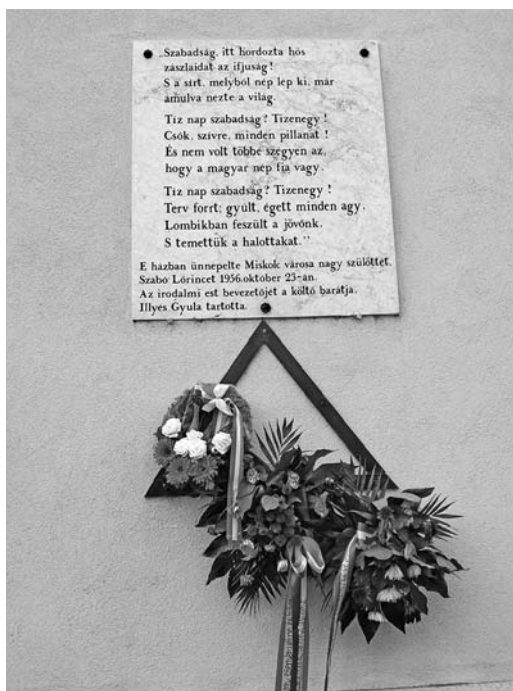 „Szabadság, itt hordozta hős
zászlaidat az ifjuság!
S a sírt, melyből nép lép ki, már
ámulva nézte a világ.
Tíz nap szabadság? Tizenegy!
Csók, szívre, minden pillanat!
És nem volt többé szégyen az,
hogy a magyar nép fia vagy.
Tíz nap szabadság? Tizenegy!
Terv forrt; gyúlt, égett minden agy.
Lombikban feszült a jövőnk.
S temettük a halottakat.”
E házban ünnepelte Miskolc városa nagy szülöttét,
Szabó Lőrincet 1956. október 23-án.
Az irodalmi est bevezetőjét a költő barátja,
Illyés Gyula tartotta.